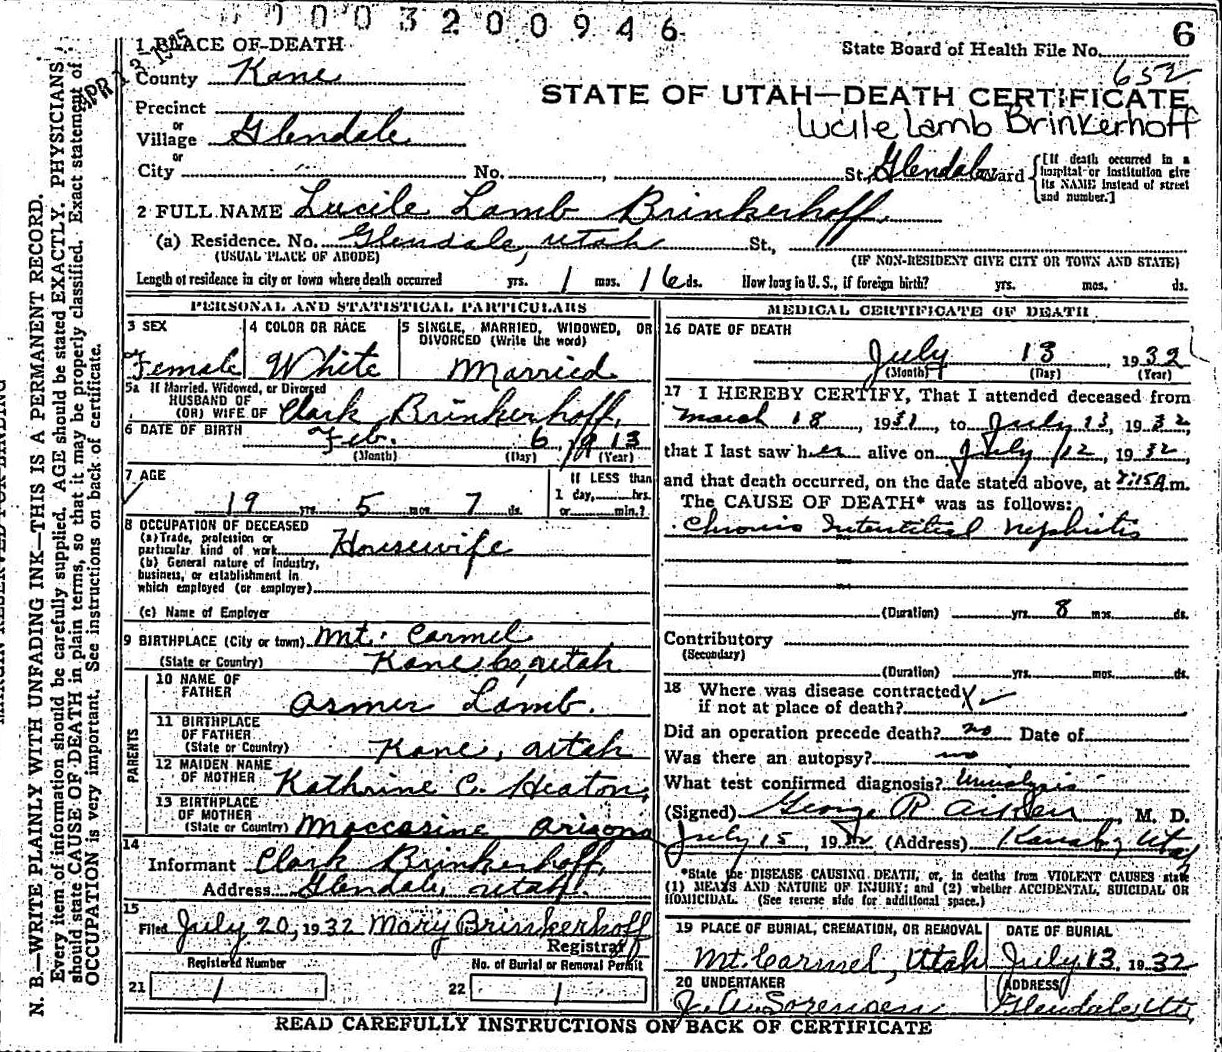 0003200946
6
APR 13 1935
1 PLACE OF DEATH
State Board of Health File No.
County Kane
652
STATE OF UTAH—DEATH CERTIFICATE
Precinct
Lucile Lamb Brinkerhoff
or
Village Glendale
or
City No. , St., Glendale Ward
[If death occurred in a hospital or institution give its NAME instead of street and number.]
2 FULL NAME Lucile Lamb Brinkerhoff
(a) Residence. No. Glendale, Utah St.,
(USUAL PLACE OF ABODE) (IF NON-RESIDENT GIVE CITY OR TOWN AND STATE)
Length of residence in city or town where death occurred yrs. 1 mos. 16 ds. How long in U.S., if foreign birth? yrs. mos. ds.
PERSONAL AND STATISTICAL PARTICULARS
3 SEX
Female
4 COLOR OR RACE
White
5 SINGLE, MARRIED, WIDOWED, OR
DIVORCED (Write the word)
Married
5a If Married, Widowed, or Divorced
HUSBAND OF
(OR) WIFE OF Clark Brinkerhoff,
6 DATE OF BIRTH Feb. 6, 1913
(Month) (Day) (Year)
7 AGE
19 yrs. 5 mos. 7 ds.
If LESS than
1 day, hrs.
or min.?
8 OCCUPATION OF DECEASED
(a) Trade, profession or
particular kind of work Housewife
(b) General nature of industry,
business, or establishment in
which employed (or employer)
(c) Name of Employer
9 BIRTHPLACE (City or town) Mt. Carmel
(State or Country) Kane Co, Utah
PARENTS
10 NAME OF
FATHER Armer Lamb.
11 BIRTHPLACE
OF FATHER
(State or Country) Kane, Utah
12 MAIDEN NAME
OF MOTHER Kathrine C. Heaton,
13 BIRTHPLACE
OF MOTHER
(State or Country) Moccasine, Arizona
14
Informant Clark Brinkerhoff,
Address Glendale, Utah.
15
Filed July 20, 1932 Mary Brinkerhoff
Registrar
Registered Number No. of Burial or Removal Permit
21 1 22 1
MEDICAL CERTIFICATE OF DEATH
16 DATE OF DEATH
July 13, 1932
(Month) (Day) (Year)
17 I HEREBY CERTIFY, That I attended deceased from
March 18, 1931 to July 13, 1932,
that I last saw her alive on July 12, 1932,
and that death occurred, on the date stated above, at 7:15 A.m.
The CAUSE OF DEATH* was as follows:
Chronic Interstitial Nephritis
(Duration) yrs. 8 mos. ds.
Contributory
(Secondary)
(Duration) yrs. mos. ds.
18 Where was disease contracted
if not at place of death?
Did an operation precede death? no Date of
Was there an autopsy? no
What test confirmed diagnosis? Urinalysis
(Signed) George R Aiken, M. D.
July 15, 1932 (Address) Kanab, Utah
*State the DISEASE CAUSING DEATH, or, in deaths from VIOLENT CAUSES state
(1) MEANS AND NATURE OF INJURY; and (2) whether ACCIDENTAL, SUICIDAL OR
HOMICIDAL. (See reverse side for additional space.)
19 PLACE OF BURIAL, CREMATION, OR REMOVAL
Mt. Carmel, Utah
DATE OF BURIAL
July 13, 1932
20 UNDERTAKER
J. A. Sorensen
ADDRESS
Glendale, Ut.
READ CAREFULLY INSTRUCTIONS ON BACK OF CERTIFICATE
N. B.—WRITE PLAINLY WITH UNFADING INK—THIS IS A PERMANENT RECORD.
Every item of information should be carefully supplied. AGE should be stated EXACTLY. PHYSICIANS
should state CAUSE OF DEATH in plain terms, so that it may be properly classified. Exact statement of
OCCUPATION is very important. See instructions on back of certificate.